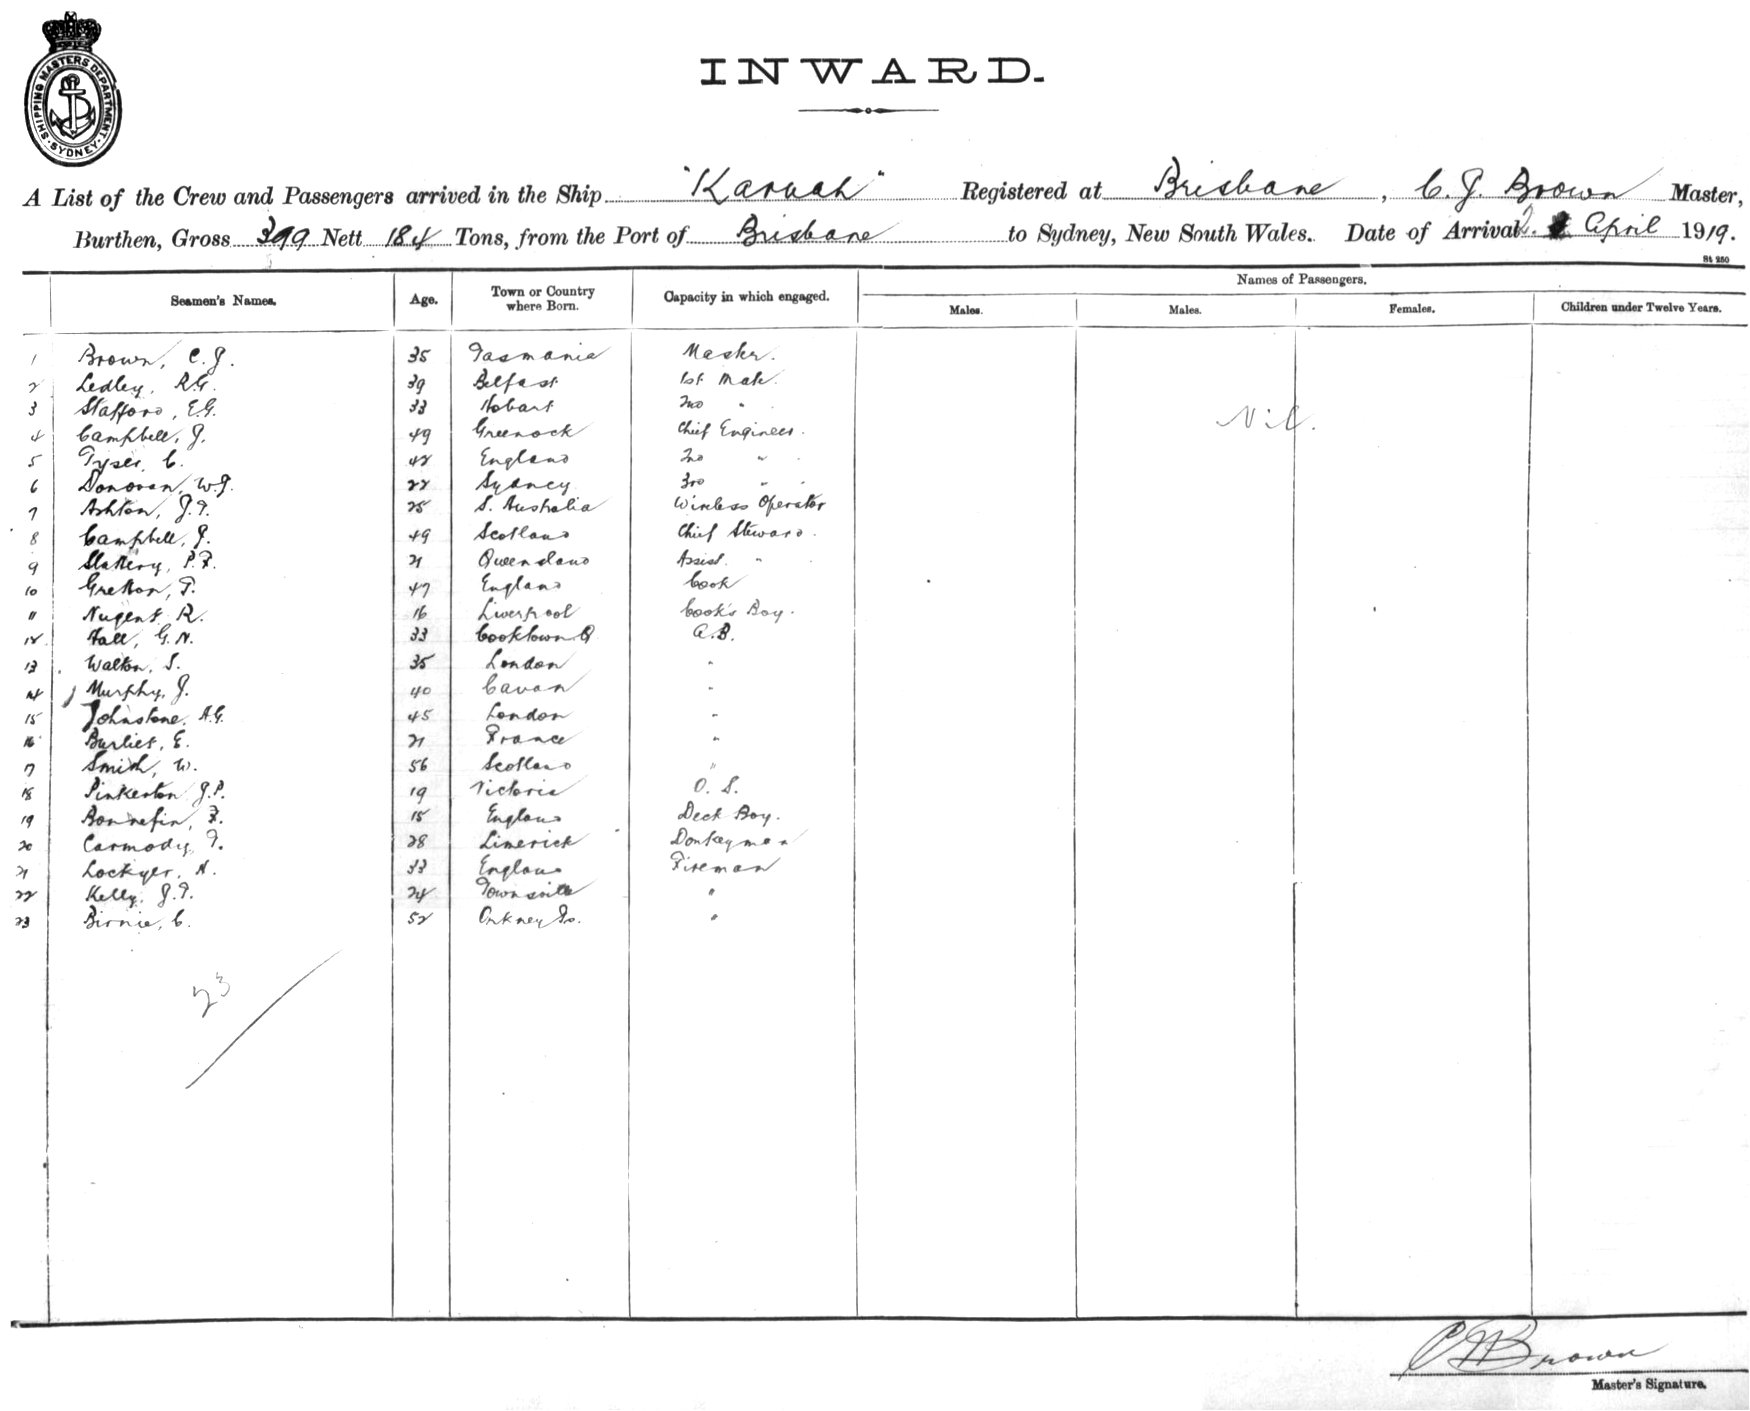 SHIPPING MASTERS DEPARTMENT
SYDNEY
INWARD.
A List of the Crew and Passengers arrived in the Ship "Karuah" Registered at Brisbane, C. J. Brown Master,
Burthen, Gross 399 Nett 184 Tons, from the Port of Brisbane to Sydney, New South Wales. Date of Arrival 2. April 1919.
St 250
Seamen's Names. Age. Town or Country where Born. Capacity in which engaged. Names of Passengers.
Males. Males. Females. Children under Twelve Years.
1 Brown, C. J. 35 Tasmania Master.
2 Ledley, R.G. 39 Belfast 1st Mate.
3 Stafford, E.G. 33 Hobart 2nd "
Nil.
4 Campbell, J. 49 Greenock Chief Engineer.
5 Tyser, C. 42 England 2nd "
6 Donovan, W.J. 22 Sydney 3rd "
7 Ashton, J.T. 25 S. Australia Wireless Operator
8 Campbell, J. 49 Scotland Chief Steward.
9 Slattery, P.F. 21 Queensland Assist. "
10 Gretton, T. 47 England Cook
11 Nugent, R. 16 Liverpool Cook's Boy.
12 Hall, G.N. 33 Cooktown Q A.B.
13 Walton, S. 35 London "
14 Murphy, J. 40 Cavan "
15 Johnstone, A.G. 45 London "
16 Burlief, E. 21 France "
17 Smith, W. 56 Scotland "
18 Pinkerton J.P. 19 Victoria O. S.
19 Bonnefin, F. 15 England Deck Boy.
20 Carmody, T. 28 Limerick Donkeyman
21 Lockyer, N. 33 England Fireman
22 Kelly, J.T. 24 Townsville "
23 Birnie, C. 52 Orkney Is. "
23
CJBrown
Master's Signature.